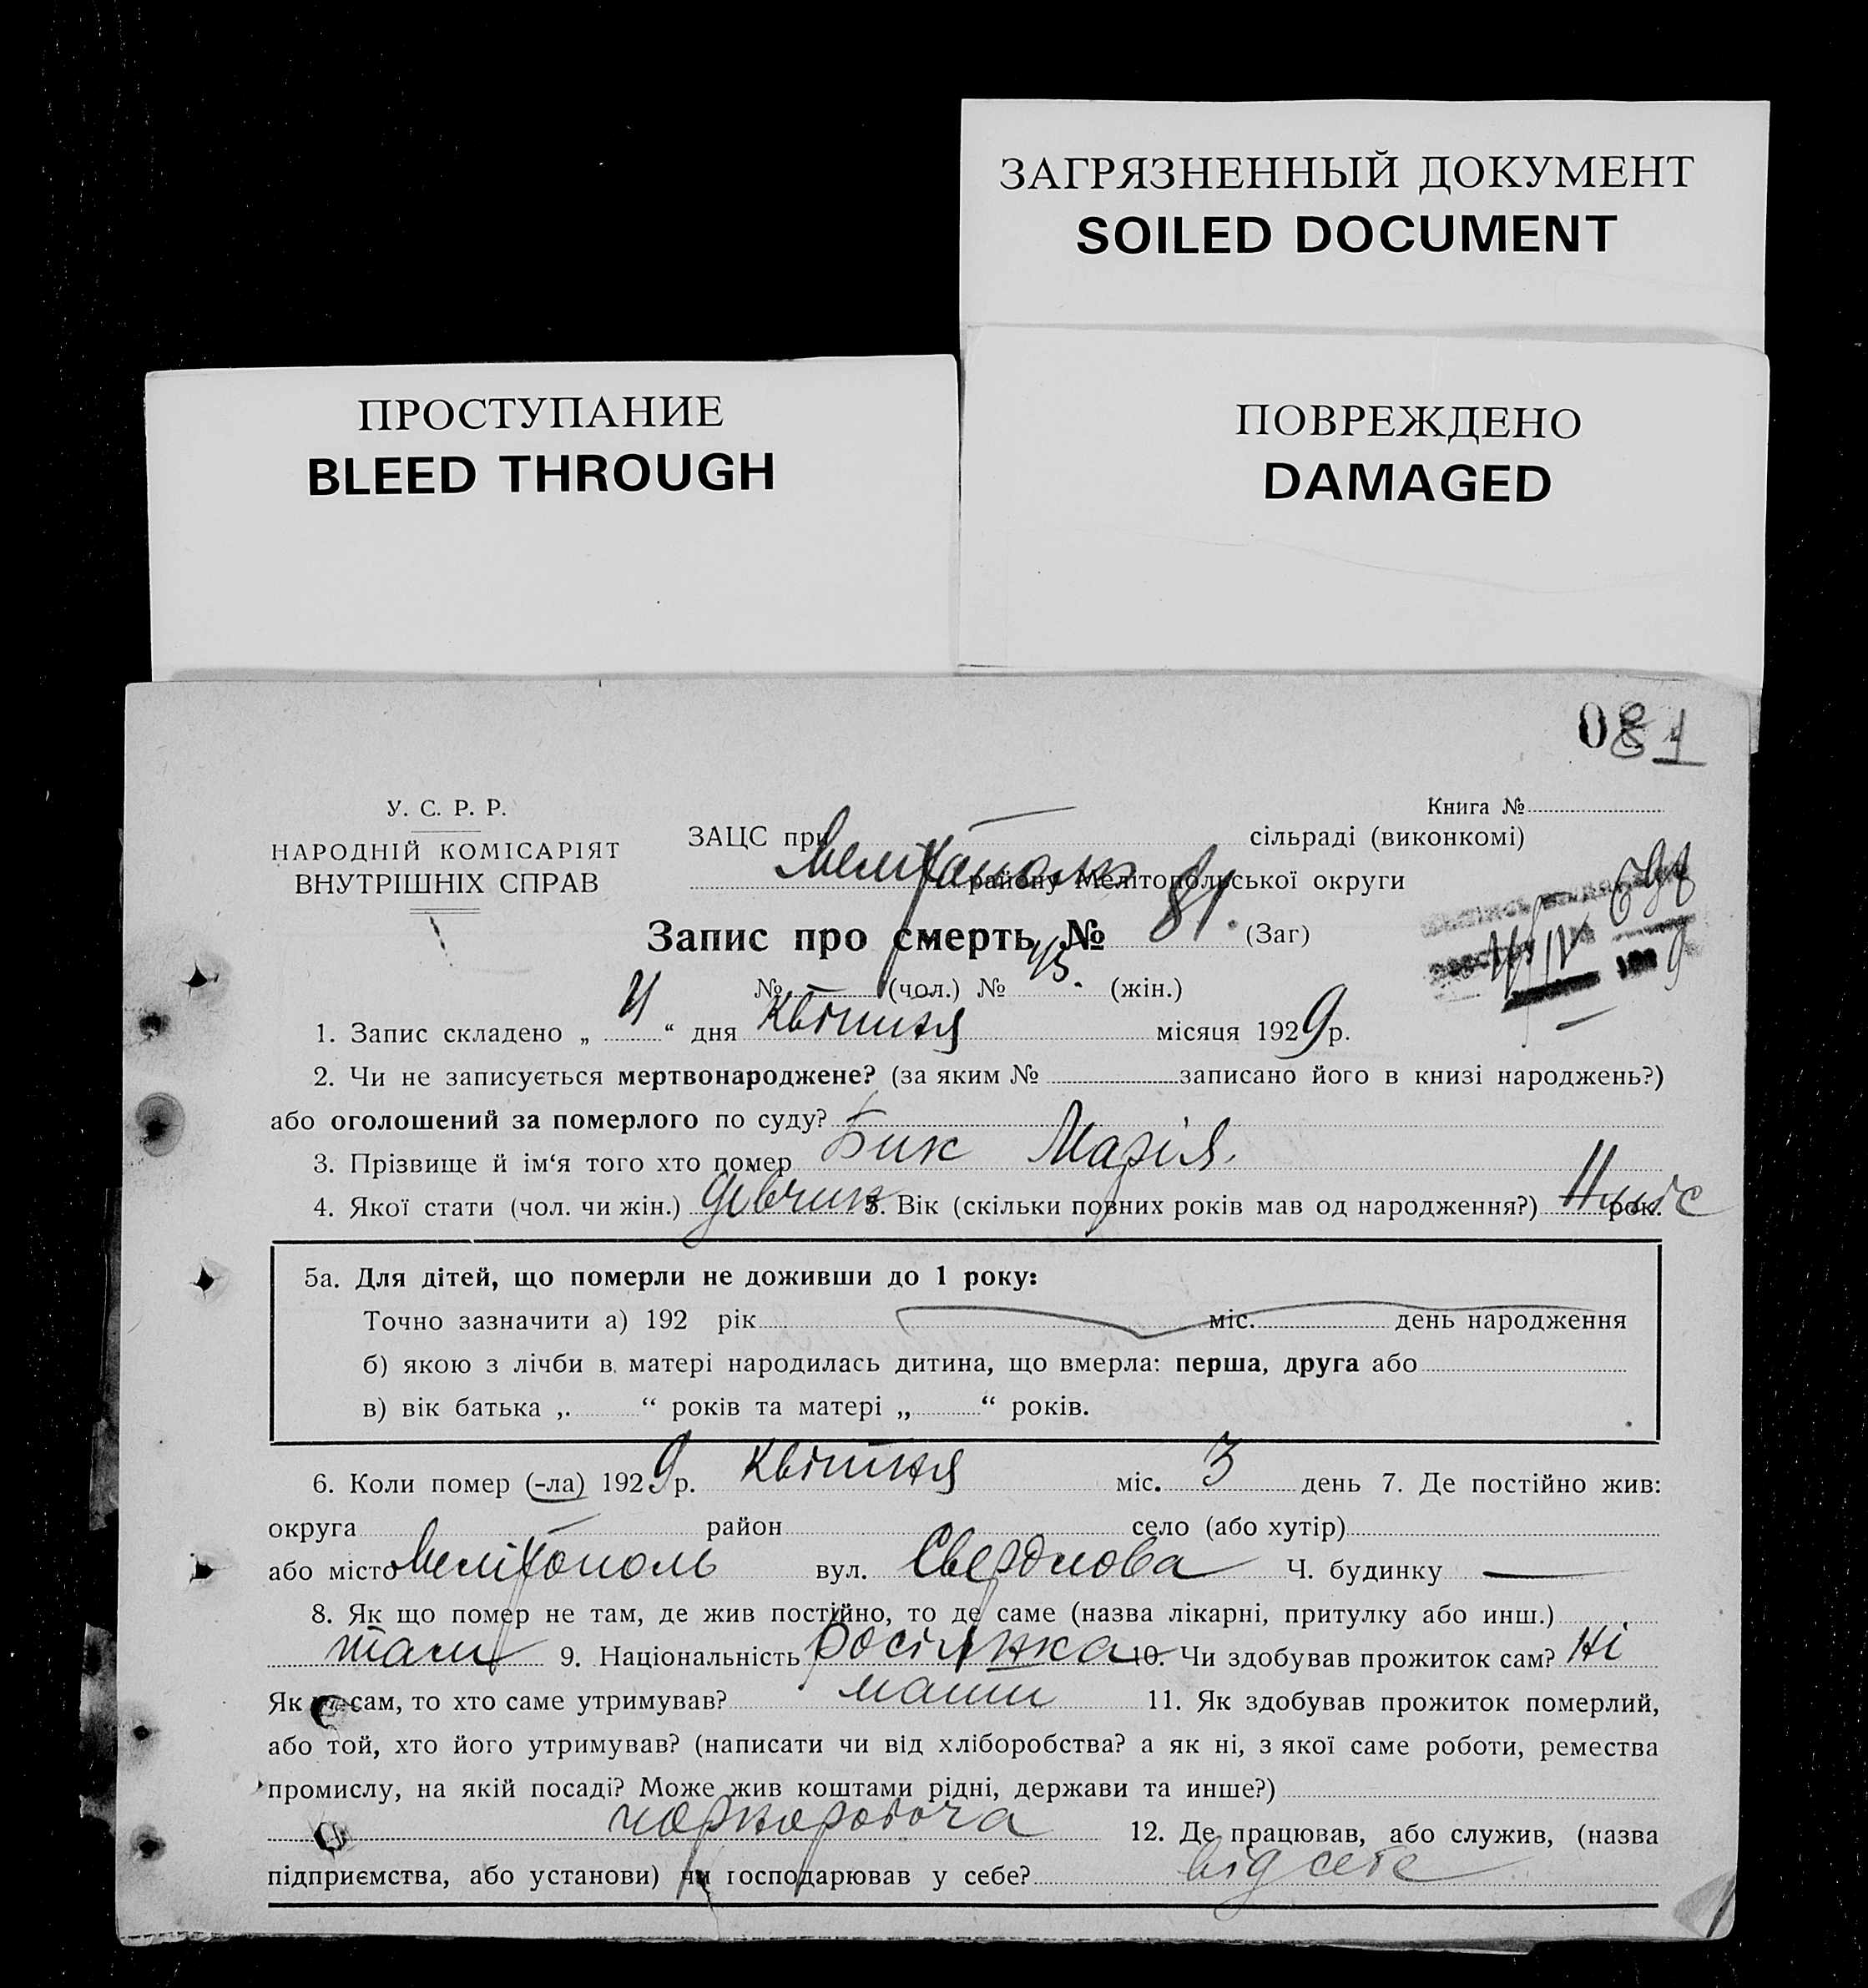 ЗАГРЯЗНЕННЫЙ ДОКУМЕНТ
SOILED DOCUMENT
ПРОСТУПАНИЕ
BLEED THROUGH
ПОВРЕЖДЕНО
DAMAGED
081
У. С. Р. Р.
НАРОДНІЙ КОМІСАРІЯТ
ВНУТРІШНІХ СПРАВ
Книга №
ЗАЦС при сільраді (виконкомі)
Мелітополь району Мелітопольської округи
Запис про смерть № 81. (Заг)
№ (чол.) № 43. (жін.)
1. Запис складено „ 4 “ дня Квітня місяця 1929р.
2. Чи не записується мертвонароджене? (за яким № записано його в книзі народжень?)
або оголошений за померлого по суду?
3. Прізвище й ім‘я того хто помер Бик Марія.
4. Якої стати (чол. чи жін.) дівчик 5. Вік (скільки повних років мав од народження?) 11 рок.
5а. Для дітей, що померли не доживши до 1 року:
Точно зазначити а) 192 рік міс. день народження
б) якою з лічби в матері народилась дитина, що вмерла: перша, друга або
в) вік батька „ “ років та матері „ “ років.
6. Коли помер (-ла) 1929р. Квітня міс. 3 день 7. Де постійно жив:
округа район село (або хутір)
або місто Мелітополь вул. Свердлова Ч. будинку —
8. Як що помер не там, де жив постійно, то де саме (назва лікарні, притулку або инш.)
там 9. Національність Росіянка 10. Чи здобував прожиток сам? Ні
Як не сам, то хто саме утримував? мати 11. Як здобував прожиток померлий,
або той, хто його утримував? (написати чи від хліборобства? а як ні, з якої саме роботи, ремества
промислу, на якій посаді? Може жив коштами рідні, держави та инше?)
чорнороботча 12. Де працював, або служив, (назва
підприємства, або установи) чи господарював у себе? від себе